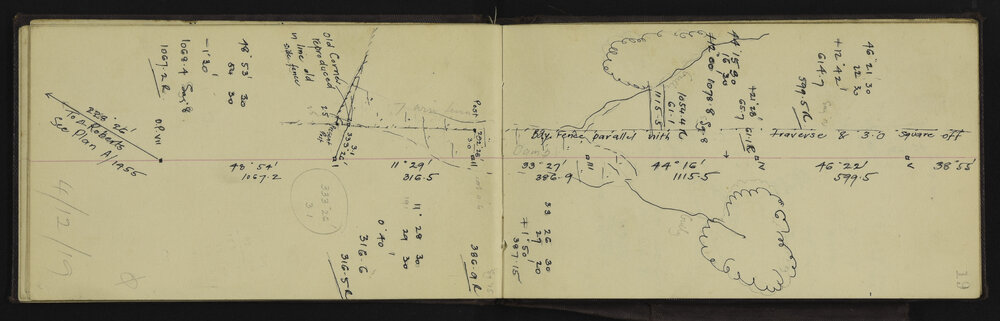 48° 53' 30
54 30
-1° 30'
1068.4 Sag.8
1067.2 R
228° 26'
To A. Roberts
See Plan A/1955
OP.VII
48° 54'
1067.2
Old Corner
reproduced
in line old
side fence
333.26
3.1
333.26
3.1
11° 29'
316.5
11° 28 30
29 30
0° 40'
316.6
316.5 R
Post
3.0
386.9 R
4/12/19
Bdy. Fence parallel with traverse & 3.0 square off
Dam
33° 27'
386.9
33 26 30
27 20
+1° 50'
387.15
44° 15 30
16 30
+12° 00 1078.8 Sg.8
1054.4 R
61.1
1115.5
+21° 28'
657
61.1 R
44° 16'
1115.5
46° 21 30
22 30
+12° 42'
614.7
599.5 R
46° 22'
599.5
38° 55'
Gully
19